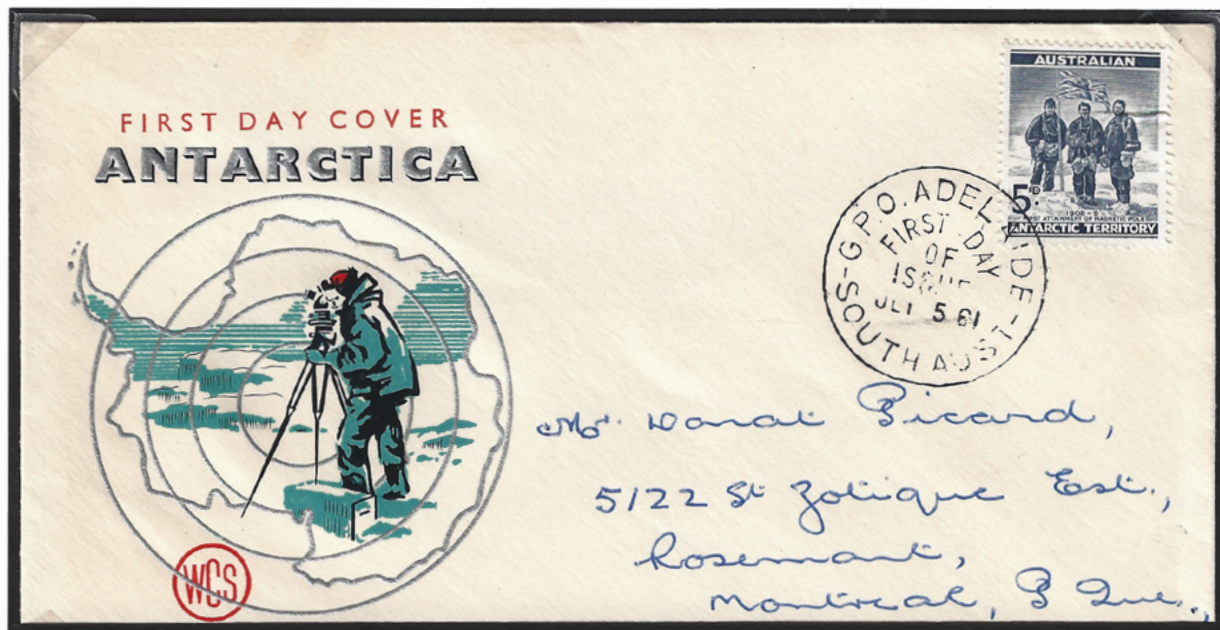 FIRST DAY COVER
ANTARCTICA
AUSTRALIAN
5D.
1908-9
FIRST ATTAINMENT OF MAGNETIC POLE
ANTARCTIC TERRITORY
G.P.O. ADELAIDE
FIRST DAY
OF
ISSUE
JLY 5 61
SOUTH AUST
Mr. Donat Picard,
5122 St Zotique East.,
Rosemont,
Montreal, P Que.,
WCS